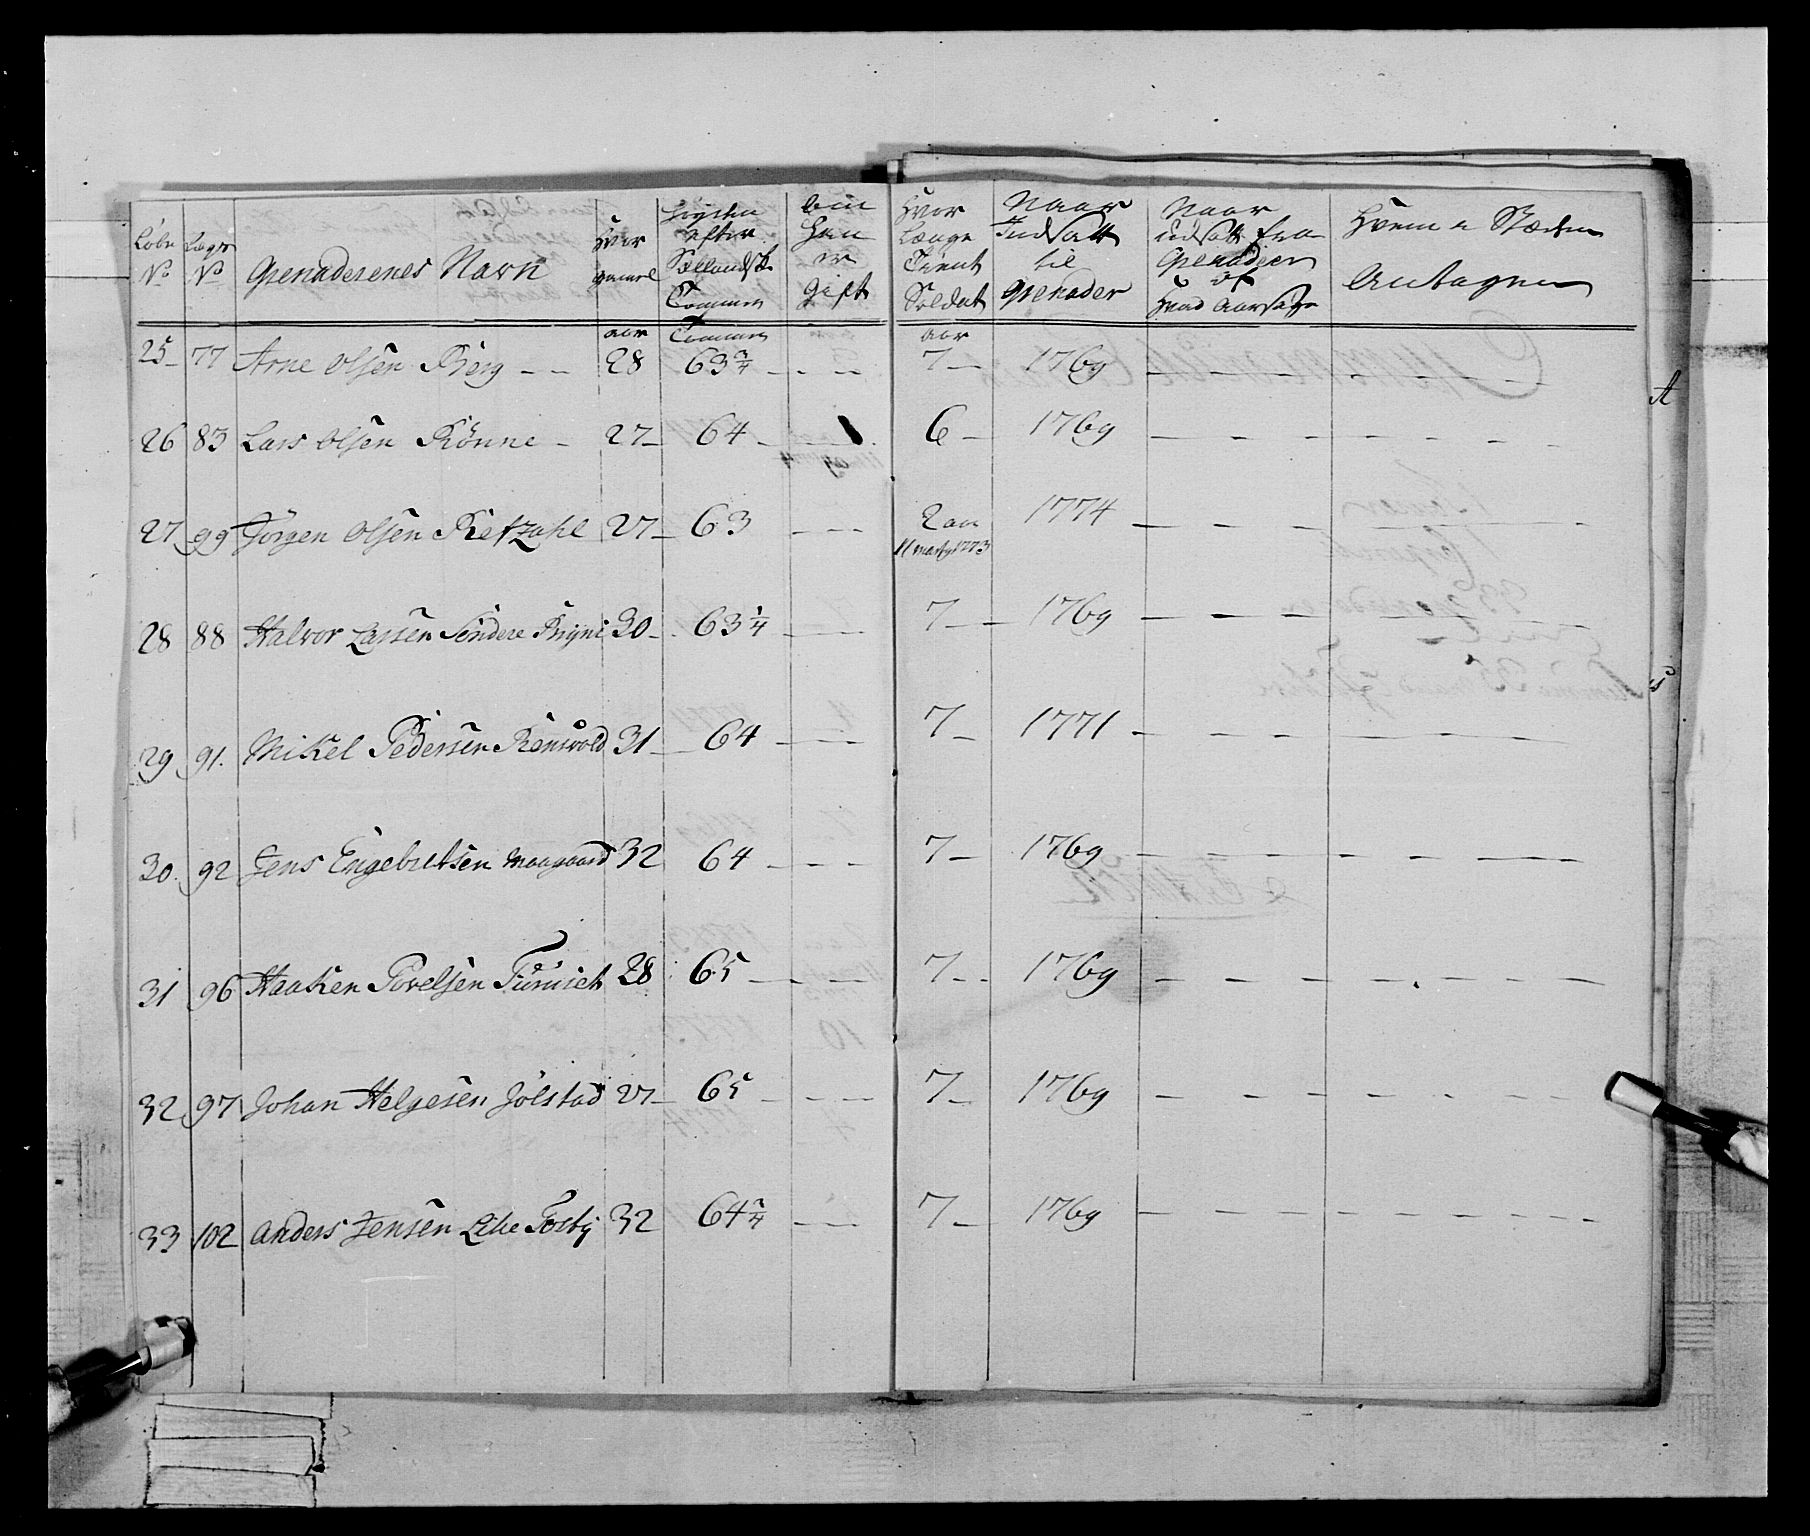 Løbe No
Lægs No
Grenaderenes Navn
Hvor gamel
Høyden efter Sællandsk Tommer
om Han er gift
Hvor Længe Tient Soldat
Naar Indsatt til Grenader
Naar udsatt fra Grenadier og Hvad Aarsage
Hvem i Stæden Antagen
aar Tommer aar
25 77 Arne Olsen Berg - - 28 63 3/4 - - - 7 - 1769 - - - -
26 83 Lars Olsen Rønne - 27 - 64 - 1 6 - 1769 - - - -
27 99 Jørgen Olsen 27 - 63 - - 2 aar 1774 - - - -
11 marty 1773
28 88 Halvor Larsen Søndere 30 - 63 1/4 - - 7 - 1769 - - - -
29 91. Mikel Pedersen 31 - 64 - - - 7 - 1771 - - - -
30. 92 Jens Engebretsen Maagaard 32 64 - - - 7 - 1769 - - - -
31 96 Haaken Povelsen 28 65 - - - 7 - 1769 - - - -
32 97 Johan Helgesen Jølstad 27 - 65 - - - 7 - 1769 - - - -
33 102 Anders Jensen Lille Tosby 32 64 3/4 - - 7 - 1769 - - - -